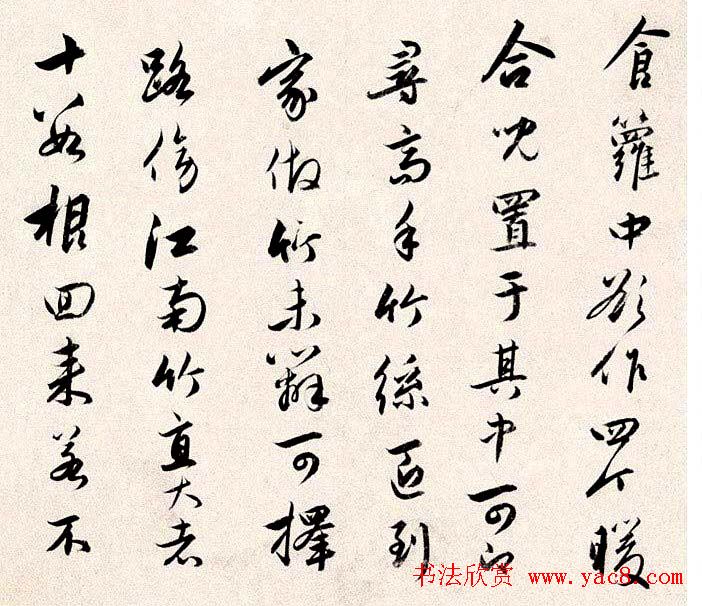 食籮中欲作四个暖
合兒置于其中可即
尋高手竹絲匠到
家做竹未辦可擇
路傍江南竹直大者
十數根回来若不
书法欣赏 www.yac8.com